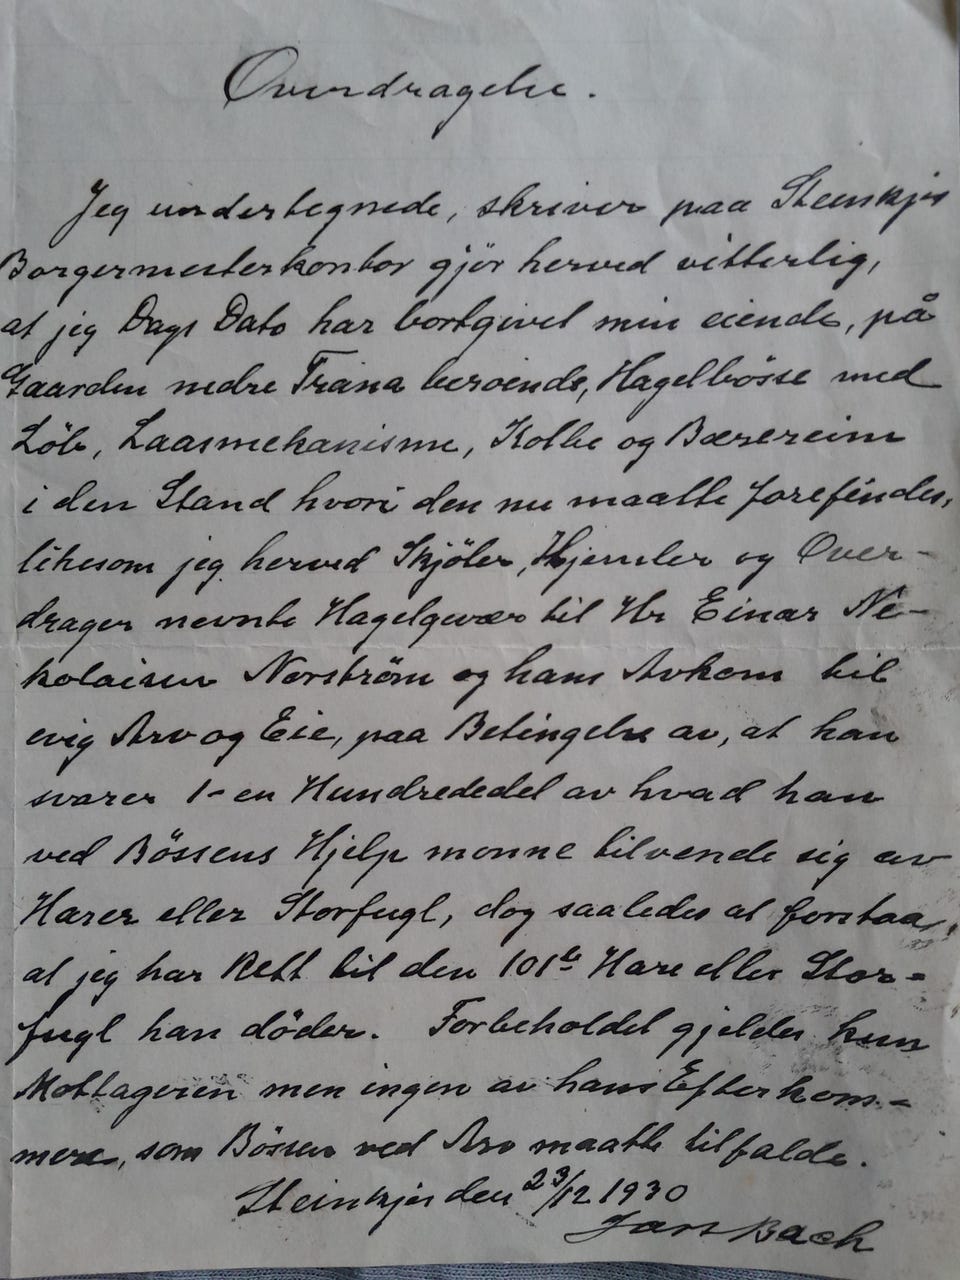 Overdragelse.
Jeg undertegnede, skriver paa Steinkjer
Borgermesterkontor gjör herved vitterlig,
at jeg Dags Dato har bortgivet min eiende, på
Gaarden nedre Trana beroende, Hagelbösse med
Löb, Laasmekanisme, Kolbe og Bærereim
i den Stand hvori den nu maatte forefindes,
likesom jeg herved Skjöter, Hjemler og Over-
drager nevnte Hagelgevær til Hr Einar Ni-
kolaisen Norström og hans Avkom til
evig Arv og Eie, paa Betingelse av, at han
svarer 1-en Hundrededel av hvad han
ved Bössens Hjelp monne tilvende sig av
Harer eller Storfugl, dog saaledes at forstaa,
at jeg har Rett til den 101te Hare eller Stor-
fugl han döder. Forbeholdet gjelder kun
Mottageren men ingen av hans Efterkom-
mere, som Bössen ved Arv maatte tilfalde.
Steinkjer den 23/12 1930
Bach